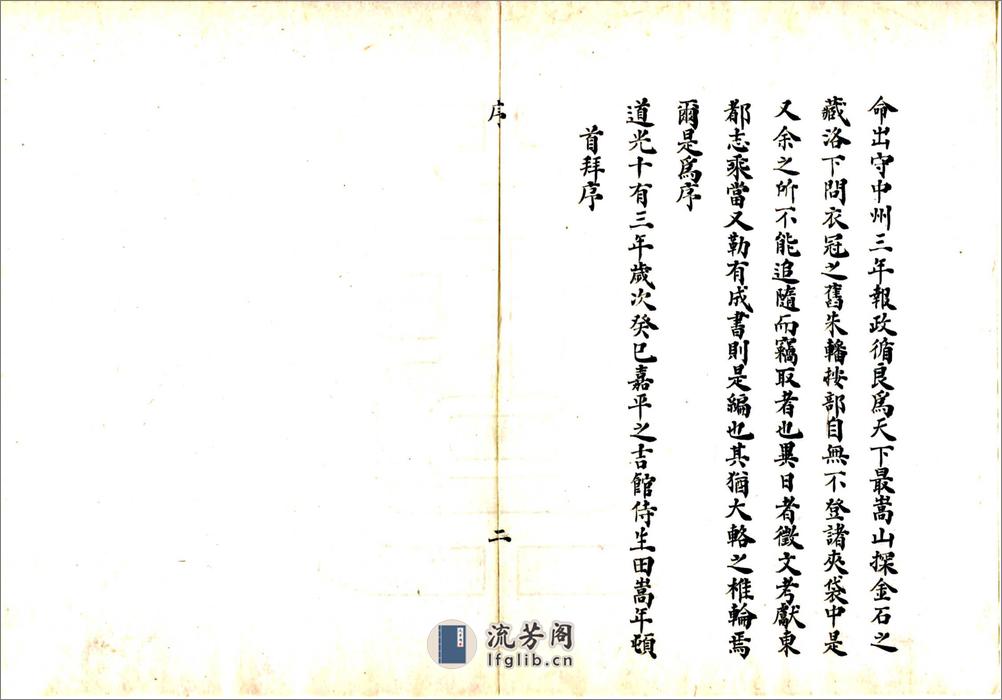 命出守中州三年報政循良爲天下最嵩山探金石之
藏洛下問衣冠之舊朱轓按部自無不登諸夾袋中是
又余之所不能追隨而竊取者也異日者徵文考獻東
都志乘當又勒有成書則是編也其猶大輅之椎輪焉
爾是爲序
道光十有三年歲次癸巳嘉平之吉館侍生田嵩年頓
首拜序
序
二
流芳阁
lfglib.cn